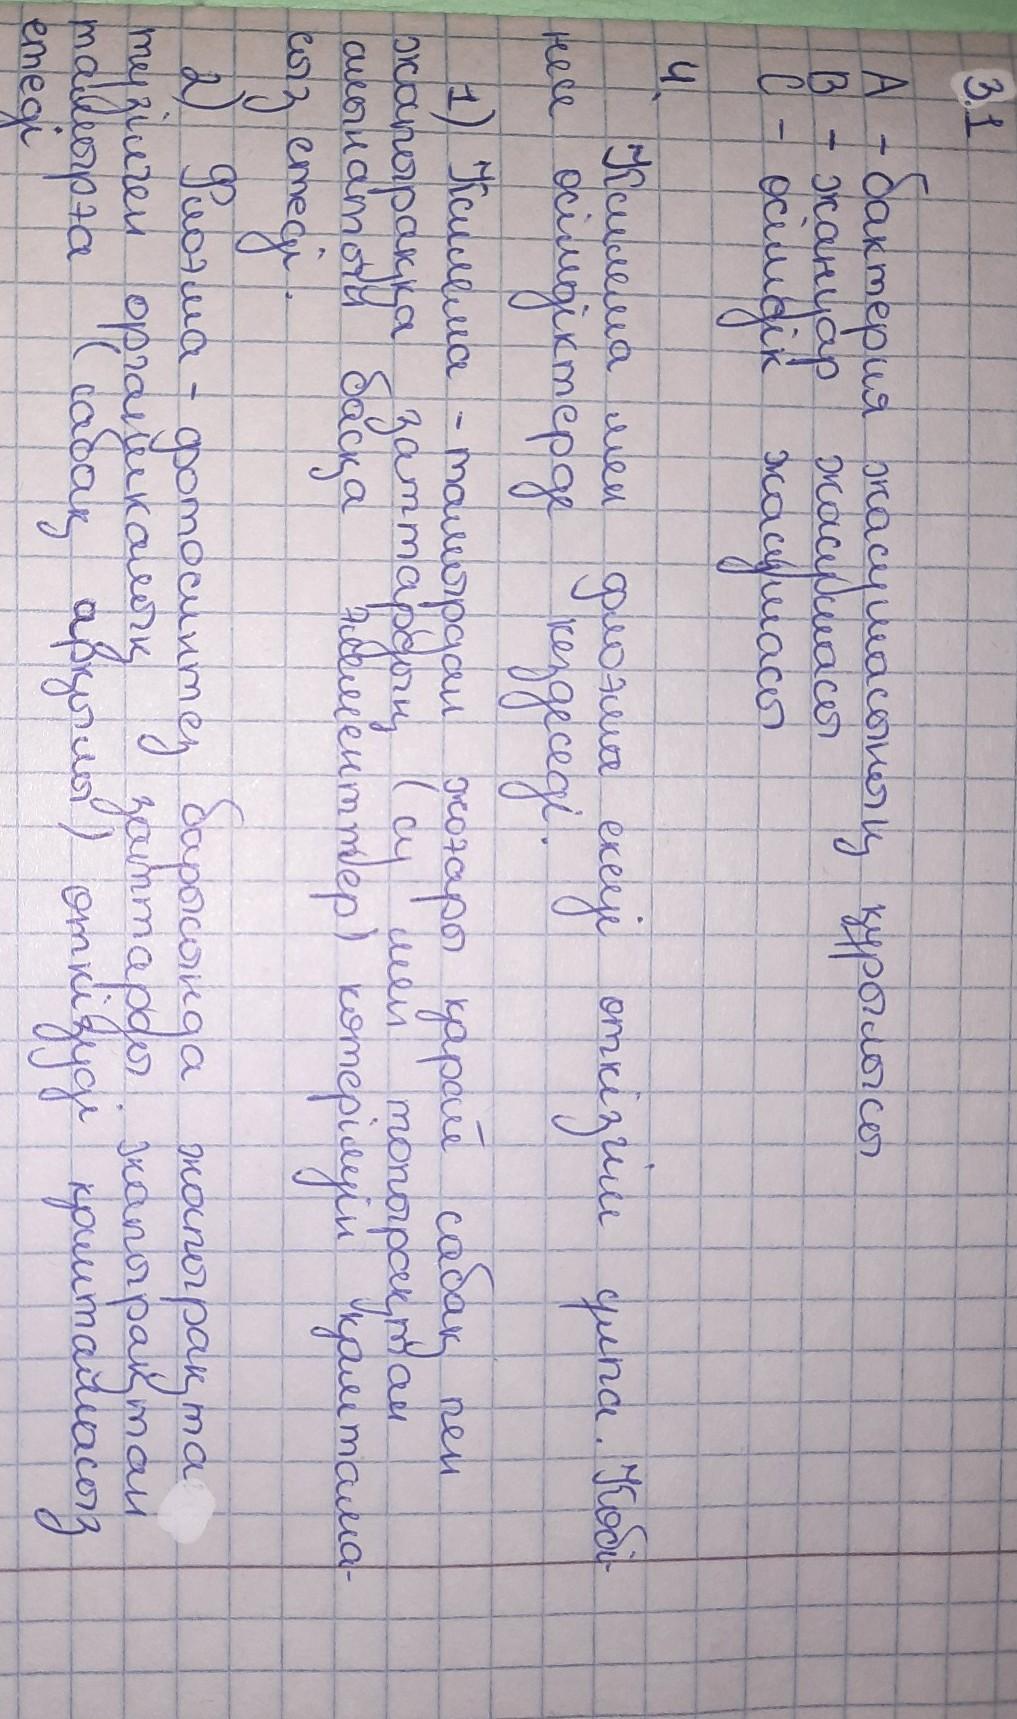 3.1
А - бактерия жасушасының құрылысы
В - жануар жасушасы
С - өсімдік жасушасы
4.
Ксилема мен флоэма екеуі өткізгіш ұлпа. Көбі-
несе өсімдіктерде кездеседі.
1) Ксилема - тамырдан жоғары қарай сабақ пен
жапыраққа заттардың (су мен топырақтан
алынатын басқа элементтер) көтерілуін қамтама-
сыз етеді.
2) Флоэма - фотосинтез барысында жапырақта
түзілген органикалық заттарды жапырақтан
тамырға (сабақ арқылы) өткізуді қамтамасыз
етеді